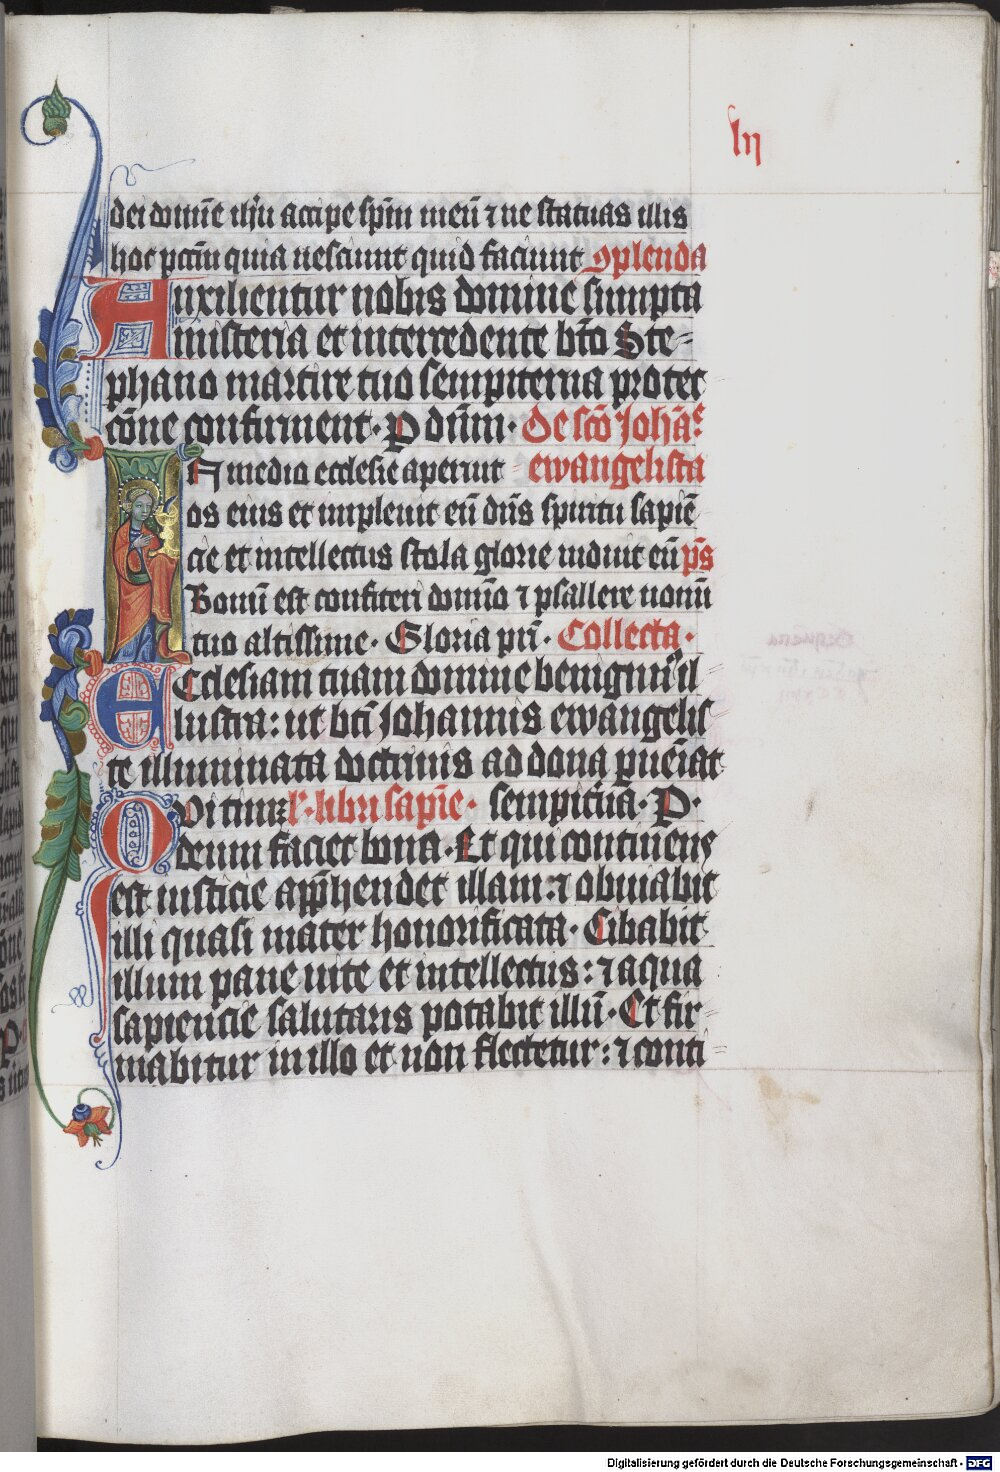 lij
dei domīe ihū accipe spm̄ meū ⁊ ne statuas illis
hoc pctm̄ quia nesciunt quid faciunt ꝯplenda
Auxilientur nobis domine sumpta
misteria et intercedente bt̄o Ste-
phano martire tuo sempiterna protec
cōne confirment. P dn̄m. De scō Johāe
IN medio ecclesie aperuit ewangelista
os eius et impleuit eū dn̄s spiritu sapiē
cie et intellectus stola glorie induit eū p̄s
Bonū est confiteri domīo ⁊ psallere nomī
tuo altissime. Gloria pr̄i. Collecta.
Ecclesiam tuam domine benignus il
lustra: ut bt̄i Johannis ewangelis
te illuminata doctrinis ad dona ꝑueīat
sempit̄na. P.
Qui timꝫ l'. libri sapīe.
deum faciet bona. Et qui continens
est iusticie appͣhendet illam: ⁊ obuiabit
illi quasi mater honorificata. Cibabit
illum pane uite et intellectus: ⁊ aqua
sapiencie salutaris potabit illū. Et fir
mabitur in illo et non flectetur: ⁊ conti
Digitalisierung gefördert durch die Deutsche Forschungsgemeinschaft - DFG